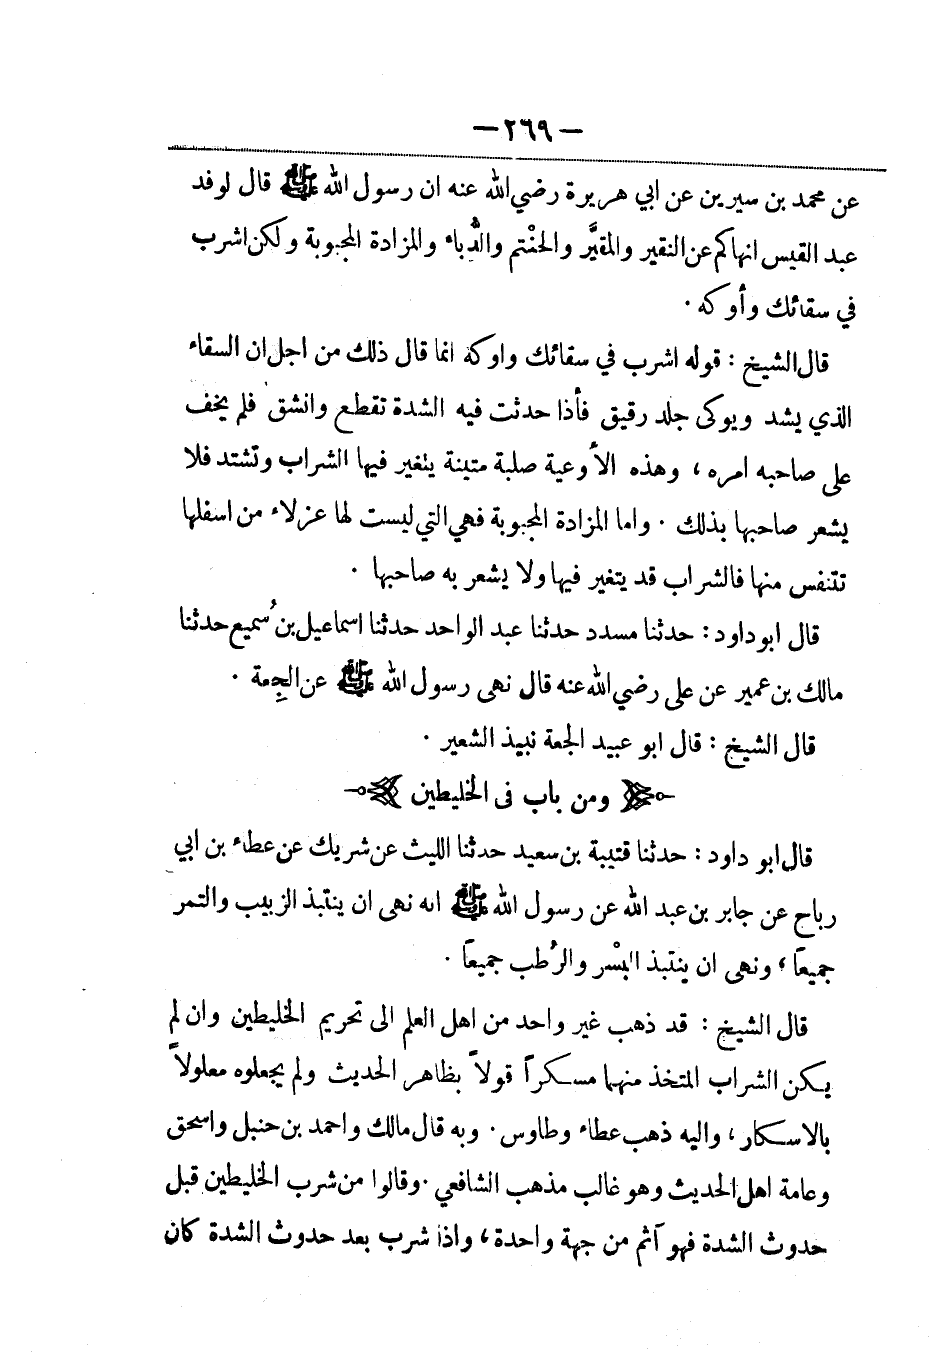 — ٢٦٩ —
عن محمد بن سيرين عن ابي هريرة رضي الله عنه ان رسول الله ﷺ قال لوفد
عبد القيس انهاكم عن النقير والمقيَّر والحنْتم والدُّباء والمزادة المجبوبة ولكن اشرب
في سقائك وأوكه ·
قال الشيخ : قوله اشرب في سقائك واوكه انما قال ذلك من اجل ان السقاء
الذي يشد ويوكى جلد رقيق فأذا حدثت فيه الشدة تقطع وانشق فلم يخف
على صاحبه امره ، وهذه الأوعية صلبة متينة يتغير فيها الشراب وتشتد فلا
يشعر صاحبها بذلك · واما المزادة المجبوبة فهي التي ليست لها عزلاء من اسفلها
تتنفس منها فالشراب قد يتغير فيها ولا يشعر به صاحبها ·
قال ابو داود : حدثنا مسدد حدثنا عبد الواحد حدثنا اسماعيل بن سُميع حدثنا
مالك بن عمير عن على رضي الله عنه قال نهى رسول الله ﷺ عن الجِعة ·
قال الشيخ : قال ابو عبيد الجعة نبيذ الشعير ·
ومن باب فى الخليطين
قال ابو داود : حدثنا قتيبة بن سعيد حدثنا الليث عن شريك عن عطاء بن ابي
رباح عن جابر بن عبد الله عن رسول الله ﷺ انه نهى ان ينتبذ الزبيب والتمر
جميعاً ، ونهى ان ينتبذ البسْر والرُطب جميعاً ·
قال الشيخ : قد ذهب غير واحد من اهل العلم الى تحريم الخليطين وان لم
يكن الشراب المتخذ منهما مسكراً قولاً بظاهر الحديث ولم يجعلوه معلولاً
بالاسكار ، واليه ذهب عطاء وطاوس · وبه قال مالك واحمد بن حنبل واسحق
وعامة اهل الحديث وهو غالب مذهب الشافعي · وقالوا من شرب الخليطين قبل
حدوث الشدة فهو آثم من جهة واحدة ، واذا شرب بعد حدوث الشدة كان